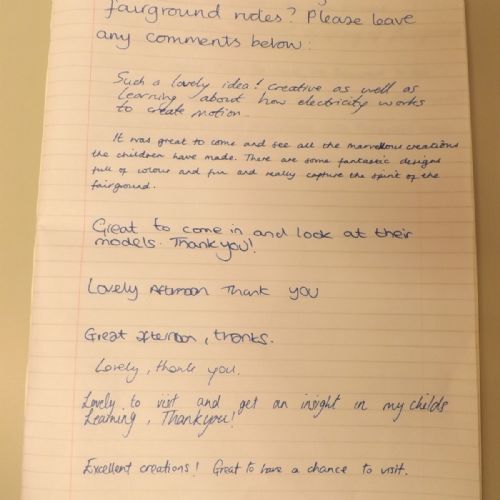 fairground rides? Please leave
any comments below:
Such a lovely idea! Creative as well as
learning about how electricity works
to create motion.
It was great to come and see all the marvellous creations
the children have made. There are some fantastic designs
full of colour and fun and really capture the spirit of the
fairground.
Great to come in and look at their
models. Thankyou!
Lovely Afternoon Thank you
Great afternoon, thanks.
Lovely, thank you.
Lovely to visit and get an insight in my childs
Learning, Thankyou!
Excellent creations! Great to have a chance to visit.